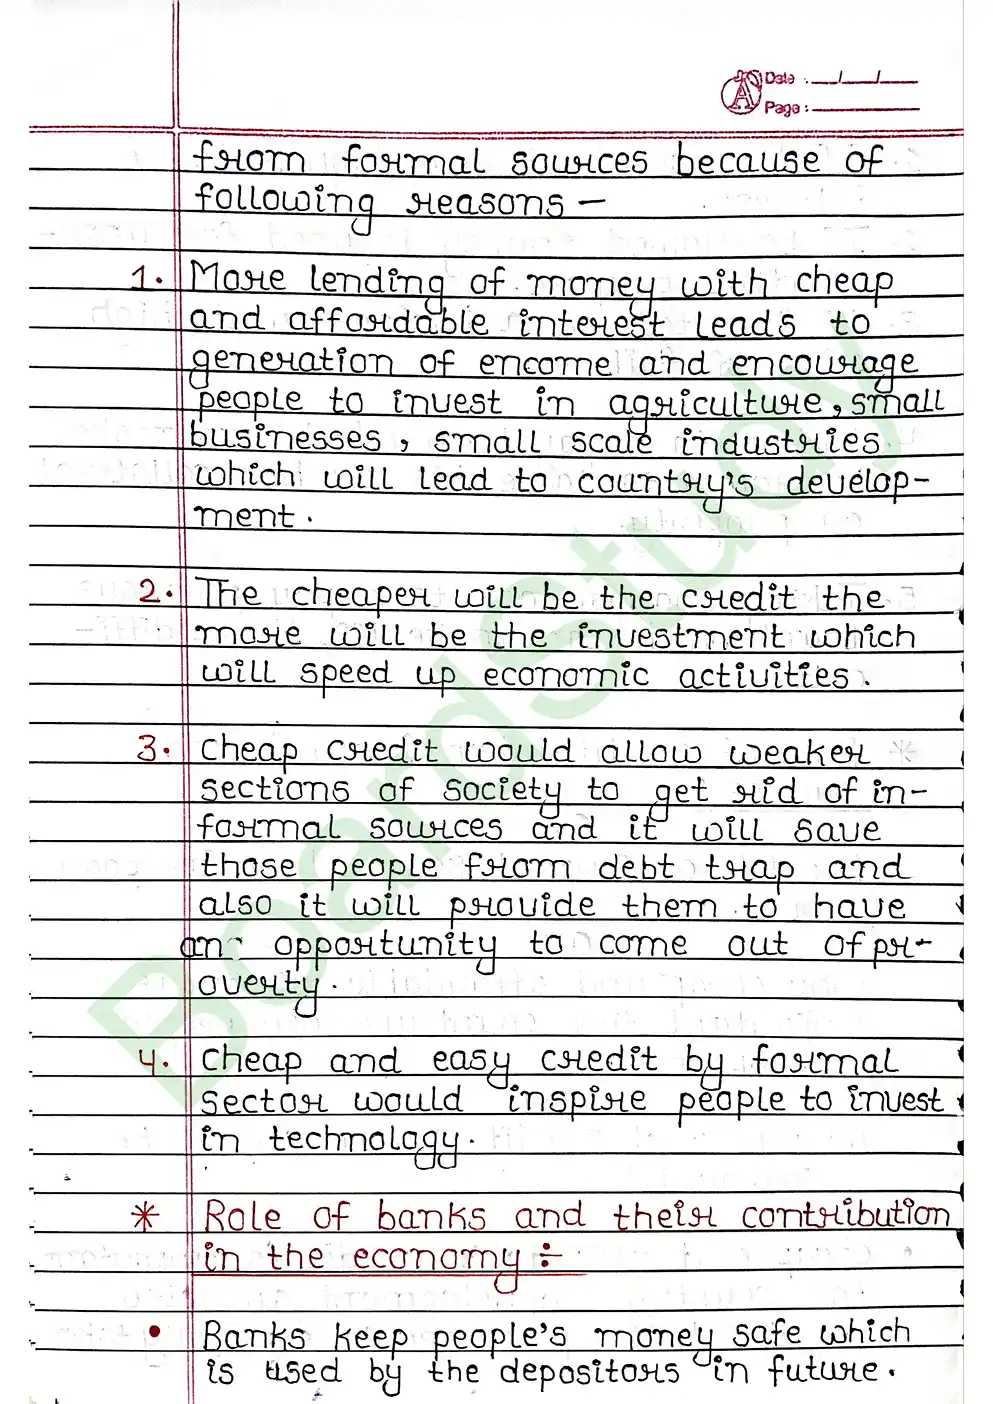 Date : __/__/__
Page : ________
from formal sources because of
following reasons –
1. More lending of money with cheap
and affordable interest leads to
generation of encome and encourage
people to invest in agriculture, small
businesses, small scale industries
which will lead to country's develop-
ment.
2. The cheaper will be the credit the
more will be the investment which
will speed up economic activities.
3. Cheap credit would allow weaker
sections of society to get rid of in-
formal sources and it will save
those people from debt trap and
also it will provide them to have
an opportunity to come out of pr-
overty.
4. Cheap and easy credit by formal
sector would inspire people to invest
in technology.
* Role of banks and their contribution
in the economy ÷
• Banks keep people's money safe which
is used by the depositors in future.
BoardStudy